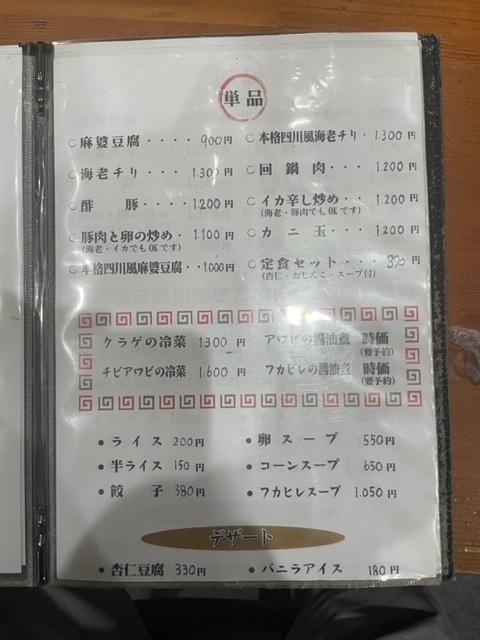 単品
麻婆豆腐・・・・900円
海老チリ・・・・1.300円
酢豚・・・・1.200円
豚肉と卵の炒め・1.100円
(海老・イカでもOKです)
本格四川風麻婆豆腐・・1.000円
本格四川風海老チリ・1.300円
回鍋肉・・・1.200円
イカ辛し炒め・・1.200円
(海老・豚肉でもOKです)
カニ玉・・・1.200円
定食セット・・・円
(杏仁・おしんこ・スープ付)
クラゲの冷菜 1.300円
チビアワビの冷菜 1.600円
アワビの醤油煮 時価
(要予約)
フカヒレの醤油煮 時価
(要予約)
・ライス 200円
・半ライス 150円
・餃子 380円
・卵スープ 550円
・コーンスープ 650円
・フカヒレスープ 1.050円
デザート
・杏仁豆腐 330円
・バニラアイス 180円